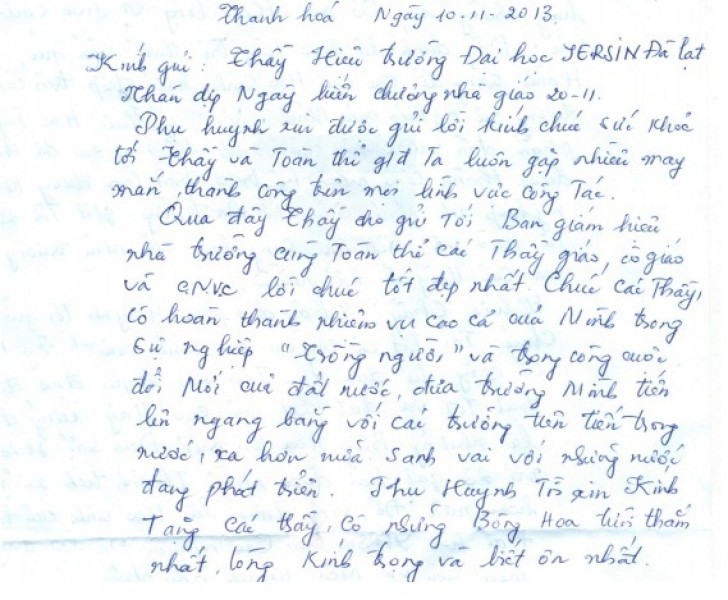 Thanh hoá Ngày 10-11-2013
Kính gửi: Thầy Hiệu trưởng Đại học YERSIN Đà lạt
Nhân dịp Ngày hiến chương nhà giáo 20-11.
Phụ huynh xin được gửi lời kính chúc sức khỏe
tới Thầy và Toàn thể g/đ Ta luôn gặp nhiều may
mắn thành công trên mọi lĩnh vực công Tác.
Qua đây Thầy cho gửi Tới Ban giám hiệu
nhà trường cùng Toàn thể các Thầy giáo, cô giáo
và CNVC lời chúc tốt đẹp nhất. Chúc các Thầy,
cô hoàn thành nhiệm vụ cao cả của Mình trong
sự nghiệp "Trồng người" và trong công cuộc
đổi Mới của đất nước, đưa trường Mình tiến
lên ngang bằng với các trường tiên tiến trong
nước, xa hơn nữa sánh vai với những nước
đang phát triển. Phụ Huynh Tôi xin Kính
Tặng các thầy, Cô những Bông Hoa tươi thắm
nhất, lòng Kính trọng và biết ơn nhất.